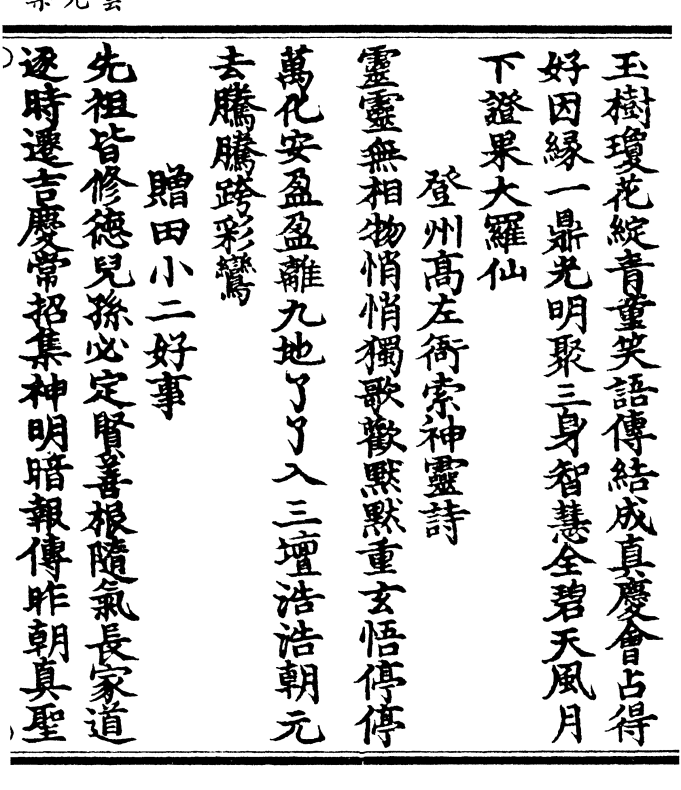 玉樹瓊花綻青童笑語傳結成真慶會占得
好因緣一鼎光明聚三身智慧全碧天風月
下證果大羅仙
登州髙左衙索神靈詩
靈靈無相物悄悄獨歌歡默默重玄悟停停
萬化安盈盈離九地了了入三壇浩浩朝元
去騰騰跨彩鸞
贈田小二好事
先祖皆修德兒孫必定賢善根隨氣長家道
逐時遷吉慶常招集神明暗報傳昨朝真聖